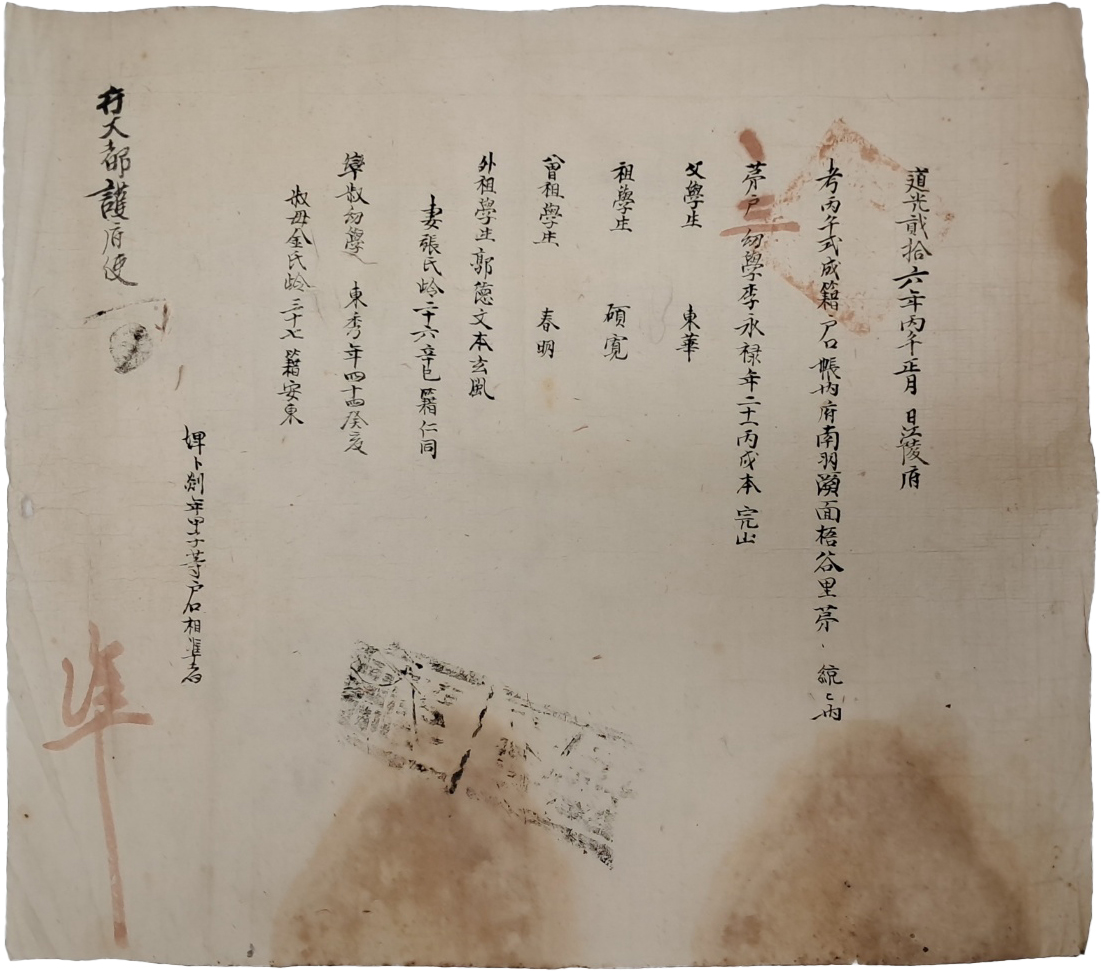 道光貳拾六年丙午正月 日江陵府
考丙午式成籍戶口帳內府南羽溪面梧谷里苐 統 內
苐三戶幼學李永祿年二十一丙戌本完山
父學生 東華
祖學生 碩寬
曾祖學生 春明
外祖學生郭德文本玄風
妻張氏齡二十六辛巳籍仁同
率叔幼學 東秀年四十四癸亥
叔母金氏齡三十七籍安東
婢卜 年 子等戶口相準者
行大都護府使
準